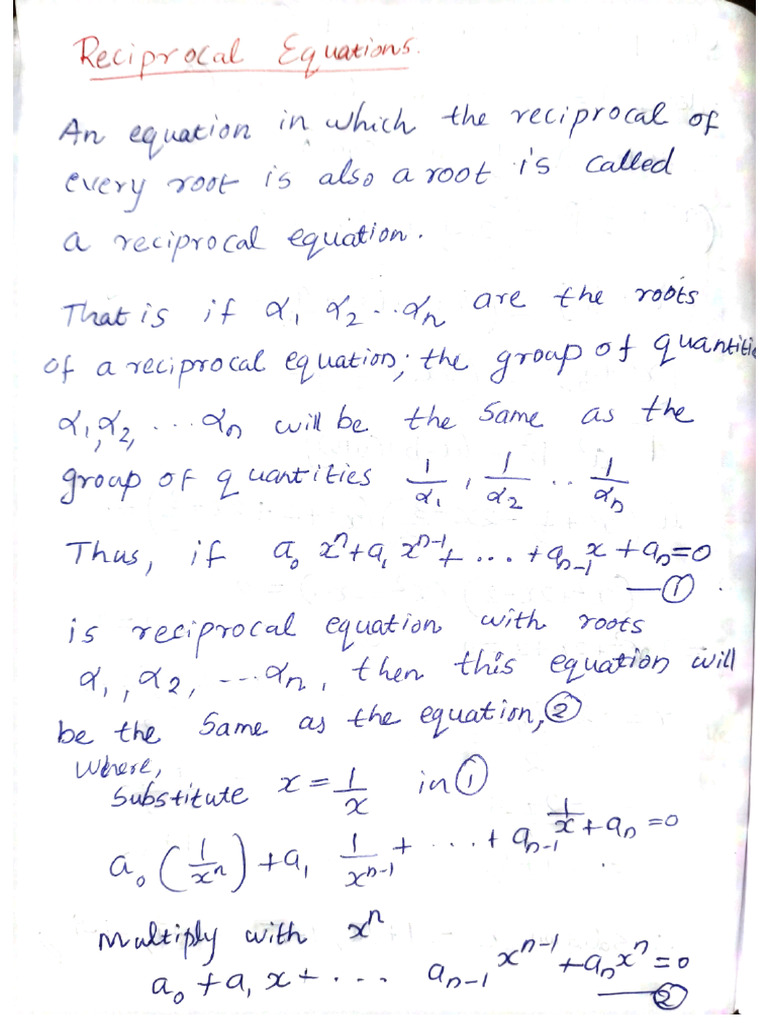 Reciprocal Equations.
An equation in which the reciprocal of
every root is also a root is called
a reciprocal equation.
That is if α₁ α₂ ... αₙ are the roots
of a reciprocal equation; the group of quantitie
α₁, α₂, ... αₙ will be the same as the
group of quantities 1/α₁, 1/α₂ .. 1/αₙ
Thus, if a₀ xⁿ + a₁ xⁿ⁻¹ + ... + aₙ₋₁ x + aₙ = 0
—①
is reciprocal equation with roots
α₁, α₂, ... αₙ, then this equation will
be the same as the equation, ②
where,
substitute x = 1/x in ①
a₀ (1/xⁿ) + a₁ 1/xⁿ⁻¹ + ... + aₙ₋₁ 1/x + aₙ = 0
multiply with xⁿ
a₀ + a₁ x + ... aₙ₋₁ xⁿ⁻¹ + aₙxⁿ = 0
—②